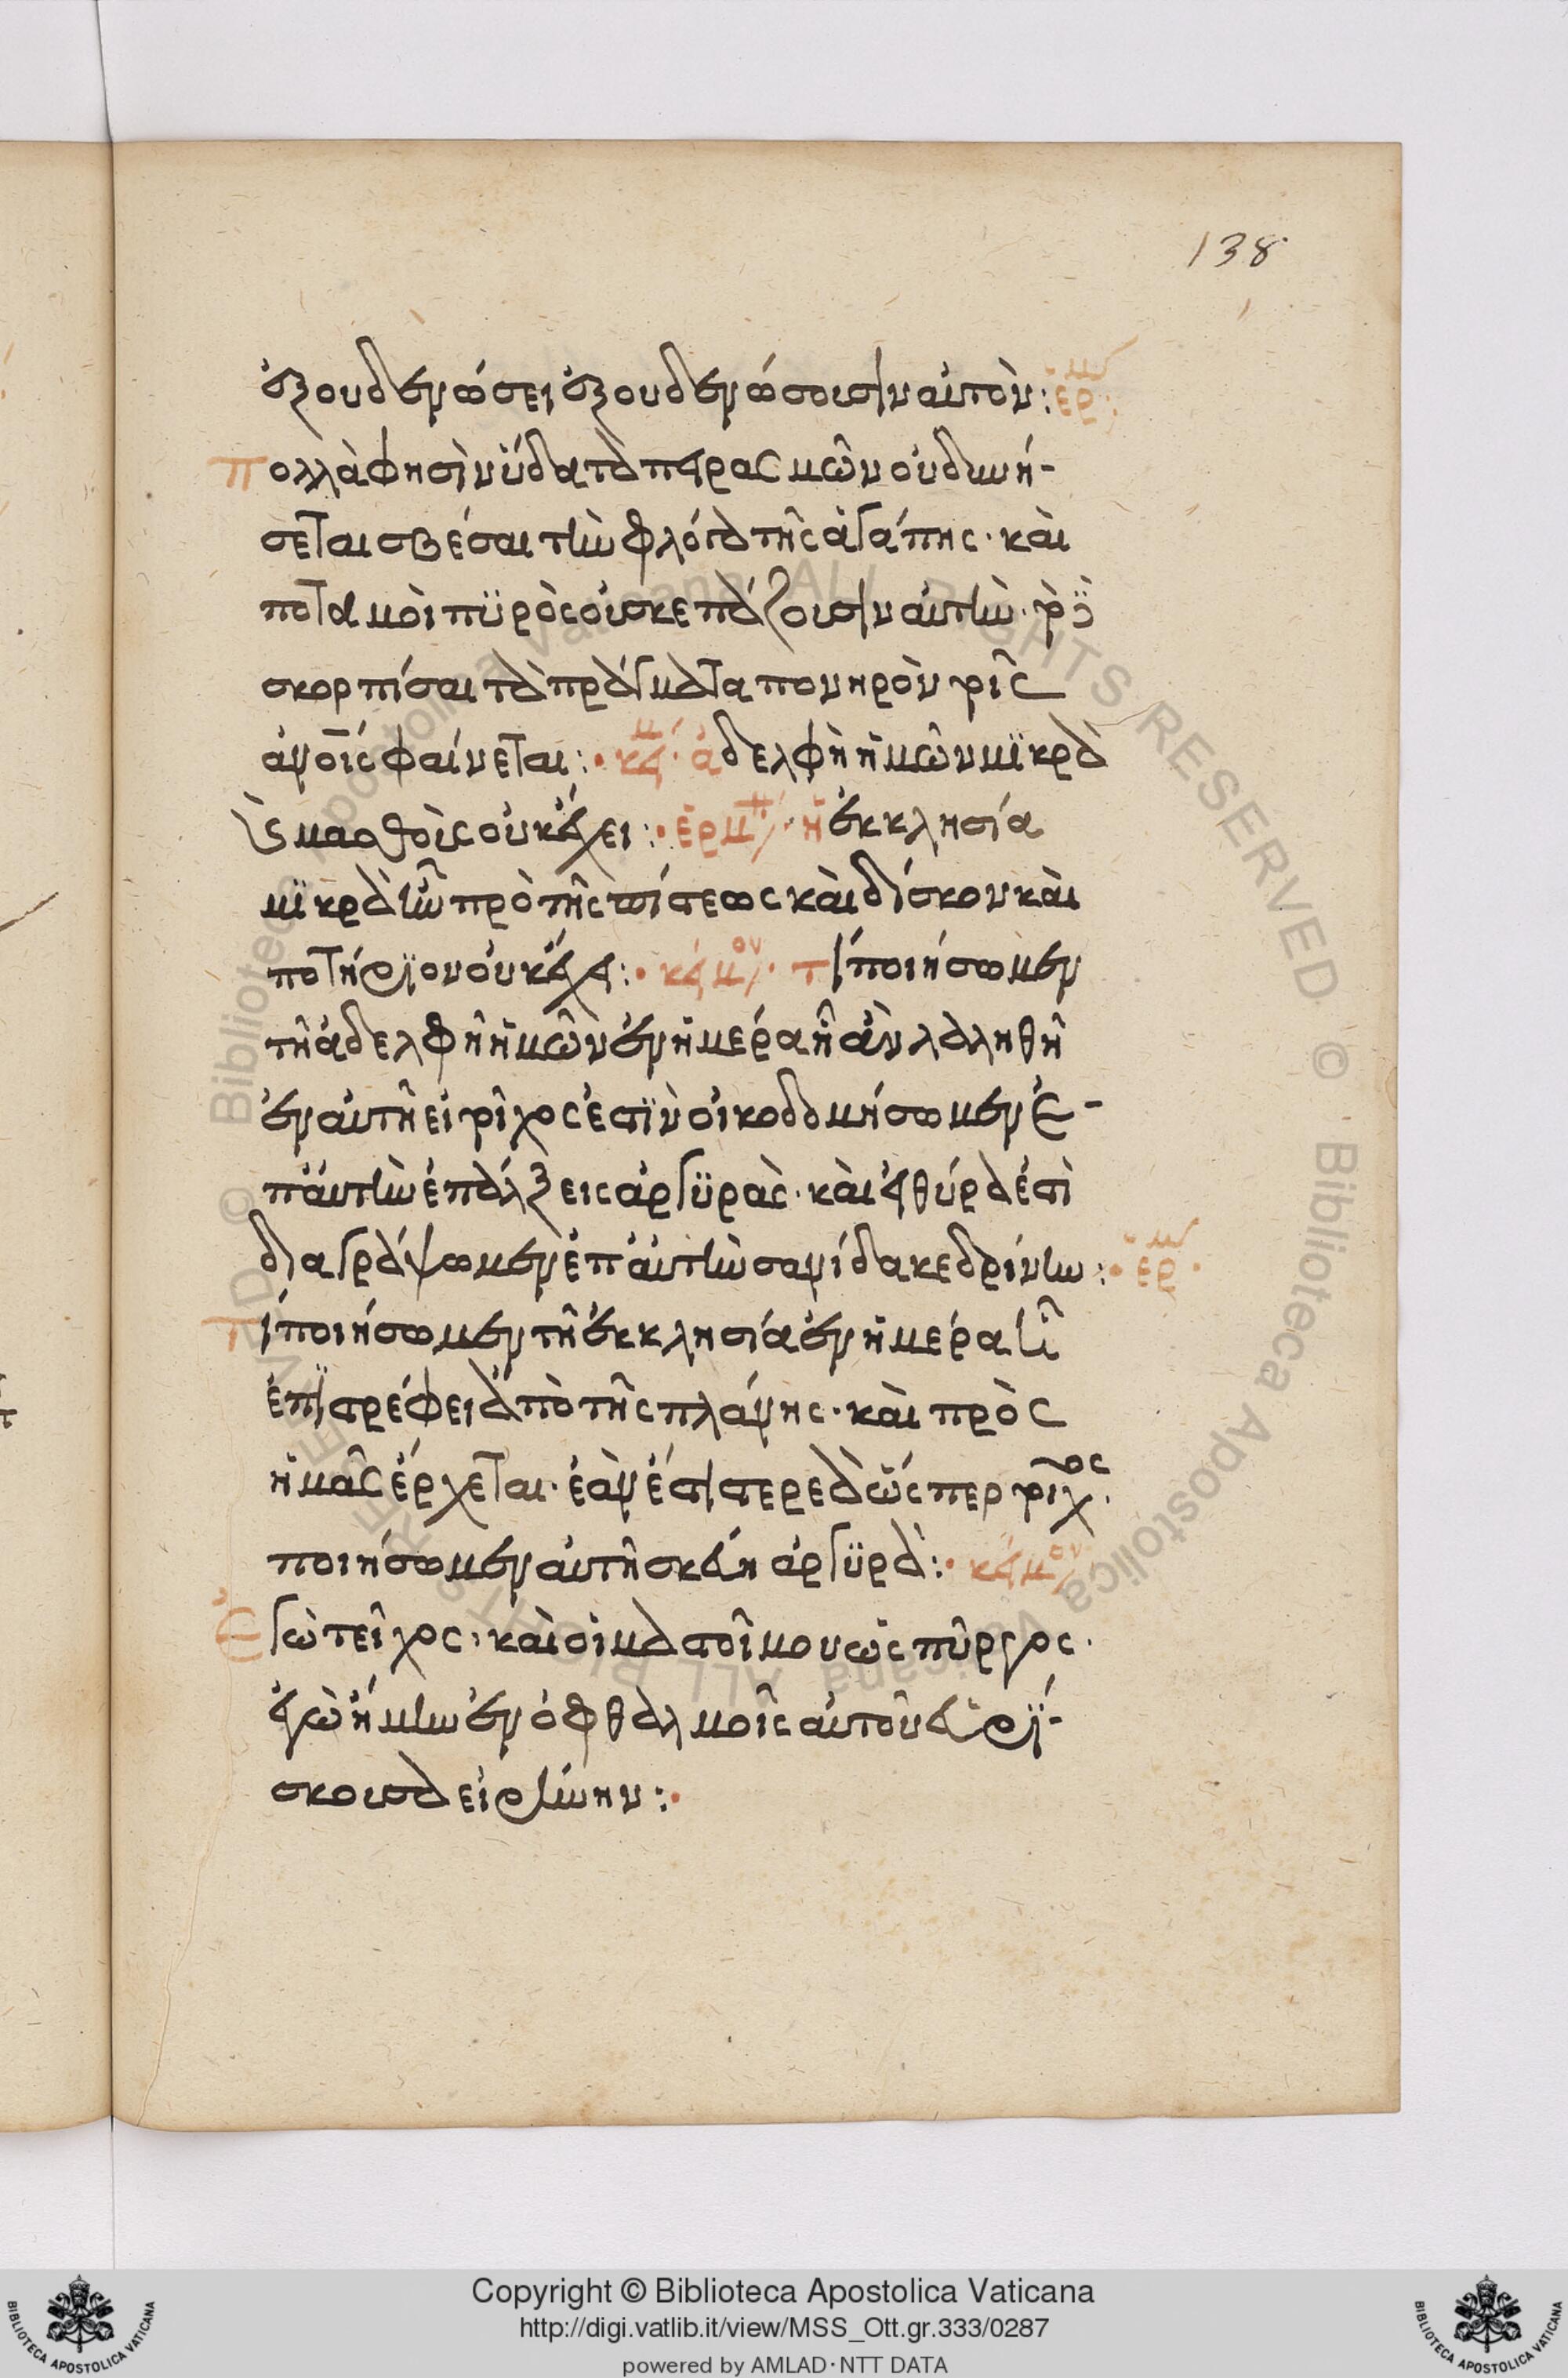 138
ἐξουδενώσει ἐξουδενώσουσιν αὐτόν: ἑρμ
πολλὰ φησὶν ὕδατα πειρασμῶν οὐ δυνή-
σεται σβέσαι τὴν φλόγα τῆς ἀγάπης· καὶ
ποταμοὶ πυρὸς οὐ σκεπάζουσιν αὐτήν· τὸ
σκορπίσαι τὰ πράγματα πονηρὸν τοῖς
ἀνοις φαίνεται: κείμ. ἀδελφὴ ἡμῶν μικρὰ
καὶ μασθοὺς οὐκ ἔχει: ἑρμ. ἡ ἐκκλησία
μικρὰ ἦν πρὸ τῆς πίστεως καὶ δίσκον καὶ
ποτήριον οὐκ εἶχεν: κείμον. τί ποιήσωμεν
τῇ ἀδελφῇ ἡμῶν ἐν ἡμέρα ἧ ἂν λαληθῆ
ἐν αὐτῇ εἰ τεῖχος ἐστὶν οἰκοδομήσωμεν ἐ-
π' αὐτὴν ἐπάλξεις ἀργυρᾶς· καὶ εἰ θύρα ἐστὶ
διαγράψωμεν ἐπ' αὐτὴν σανίδα κεδρίνην: ἑρμ
τί ποιήσωμεν τῇ ἐκκλησία ἐν ἡμέρα ἧ
ἐπιστρέφει ἀπὸ τῆς πλάνης· καὶ πρὸς
ἡμᾶς ἔρχεται· ἐὰν ἔστι στερεὰ ὥσπερ τεῖχος
ποιήσωμεν αὐτῇ σκεύη ἀργυρᾶ: κείμον
Ἐγὼ τεῖχος· καὶ οἱ μαστοί μου ὡς πύργος·
ἐγὼ ἤμην ἐν ὀφθαλμοῖς αὐτοῦ εὑρί-
σκουσα εἰρήνην:
Copyright © Biblioteca Apostolica Vaticana
http://digi.vatlib.it/view/MSS_Ott.gr.333/0287
powered by AMLAD·NTT DATA